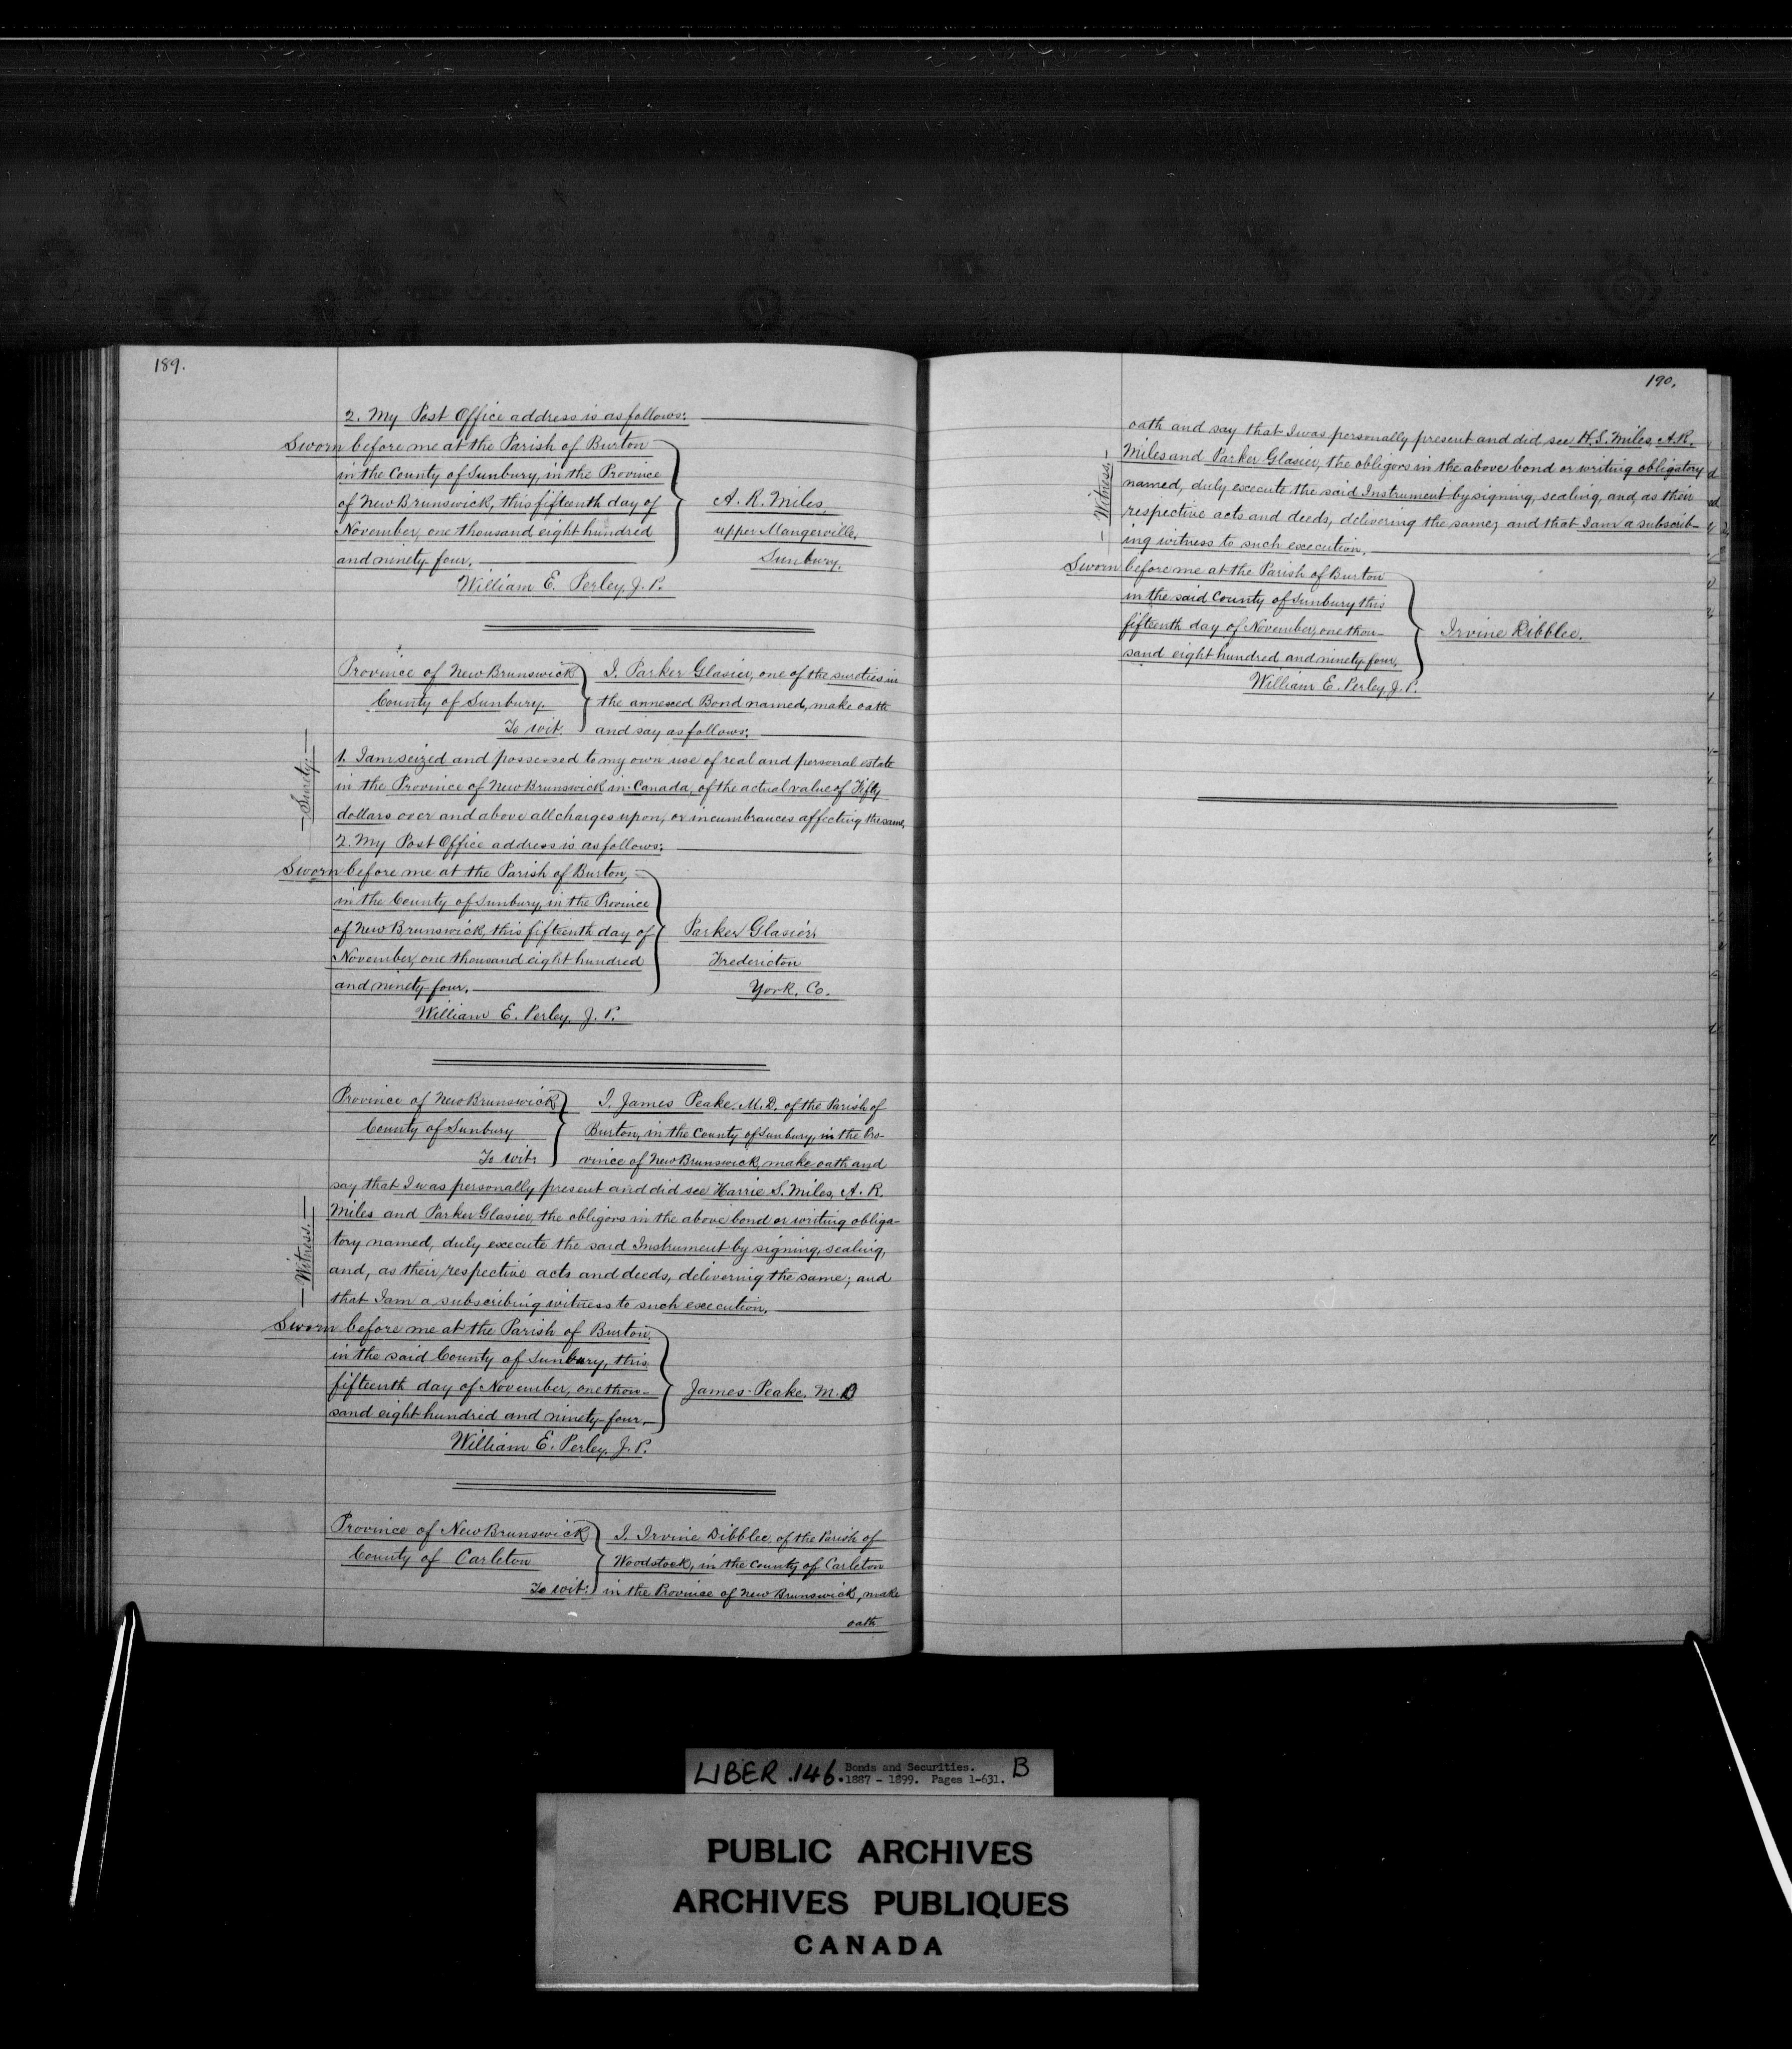 189.
2. My Post Office address is as follows:
Sworn before me at the Parish of Burton
in the County of Sunbury, in the Province
of New Brunswick, this fifteenth day of
November, one thousand eight hundred
and ninety-four.
A. R. Miles,
upper Mangerville,
Sunbury.
William E. Perley, J. P.
Province of New Brunswick
County of Sunbury.
To wit.
I, Parker Glasier, one of the sureties in
the annexed Bond named, make oath
and say as follows:
— Surety. —
1. I am seized and possessed to my own use of real and personal estate
in the Province of New Brunswick in Canada, of the actual value of Fifty
dollars over and above all charges upon, or incumbrances affecting the same,
2. My Post Office address is as follows:
Sworn before me at the Parish of Burton,
in the County of Sunbury, in the Province
of New Brunswick, this fifteenth day of
November, one thousand eight hundred
and ninety-four.
Parker Glasier,
Fredericton
York, Co.
William E. Perley, J. P.
Province of New Brunswick
County of Sunbury
To wit:
I, James Peake, M.D. of the Parish of
Burton, in the County of Sunbury, in the Pro-
vince of New Brunswick, make oath and
say that I was personally present and did see Harrie S. Miles, A. R.
Miles and Parker Glasier, the obligors in the above bond or writing obliga-
tory named, duly execute the said Instrument by signing, sealing,
and, as their respective acts and deeds, delivering the same; and
that I am a subscribing witness to such execution.
— Witness. —
Sworn before me at the Parish of Burton,
in the said County of Sunbury, this
fifteenth day of November, one thou-
sand eight hundred and ninety-four.
James Peake, M.D
William E. Perley, J. P.
Province of New Brunswick
County of Carleton
To wit:
I, Irvine Dibblee, of the Parish of
Woodstock, in the County of Carleton
in the Province of New Brunswick, make
oath
190.
oath and say that I was personally present and did see H. S. Miles, A. R.
Miles and Parker Glasier, the obligors in the above bond or writing obligatory
named, duly execute the said Instrument by signing, sealing, and, as their
respective acts and deeds, delivering the same; and that I am a subscrib-
ing witness to such execution.
— Witness. —
Sworn before me at the Parish of Burton
in the said County of Sunbury this
fifteenth day of November, one thou-
sand eight hundred and ninety-four.
Irvine Dibblee.
William E. Perley, J. P.
LIBER .146. Bonds and Securities.
1887 - 1899. Pages 1-631. B
PUBLIC ARCHIVES
ARCHIVES PUBLIQUES
CANADA